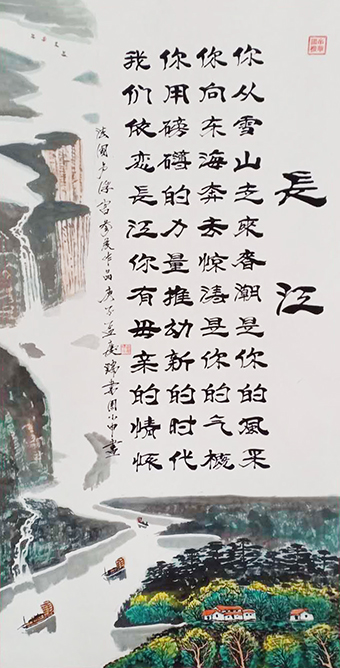 長江
你从雪山走來春潮是你的風采
你向东海奔去惊涛是你的气概
你用磅礴的力量推动新的时代
我们依恋長江你有母亲的情怀